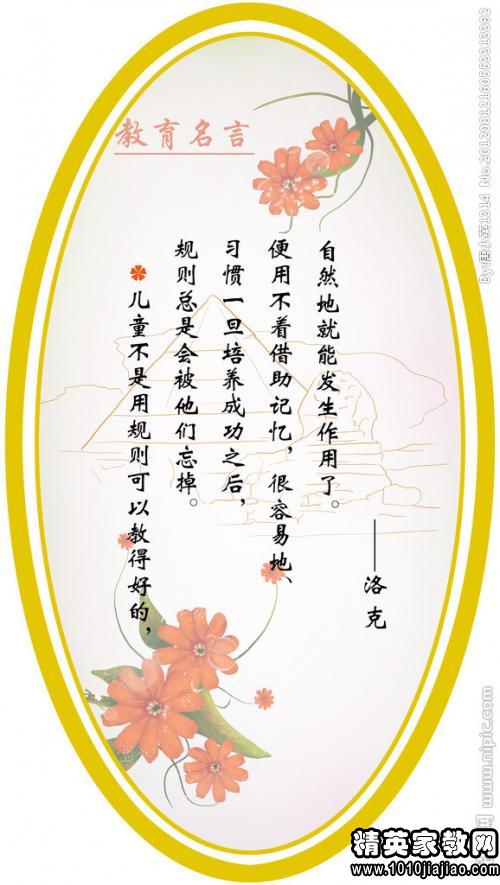 教育名言
儿童不是用规则可以教得好的，
规则总是会被他们忘掉。
习惯一旦培养成功之后，
便用不着借助记忆，很容易地、
自然地就能发生作用了。
——洛克
www.nipic.com
精英家教网
www.1010jiajiao.com